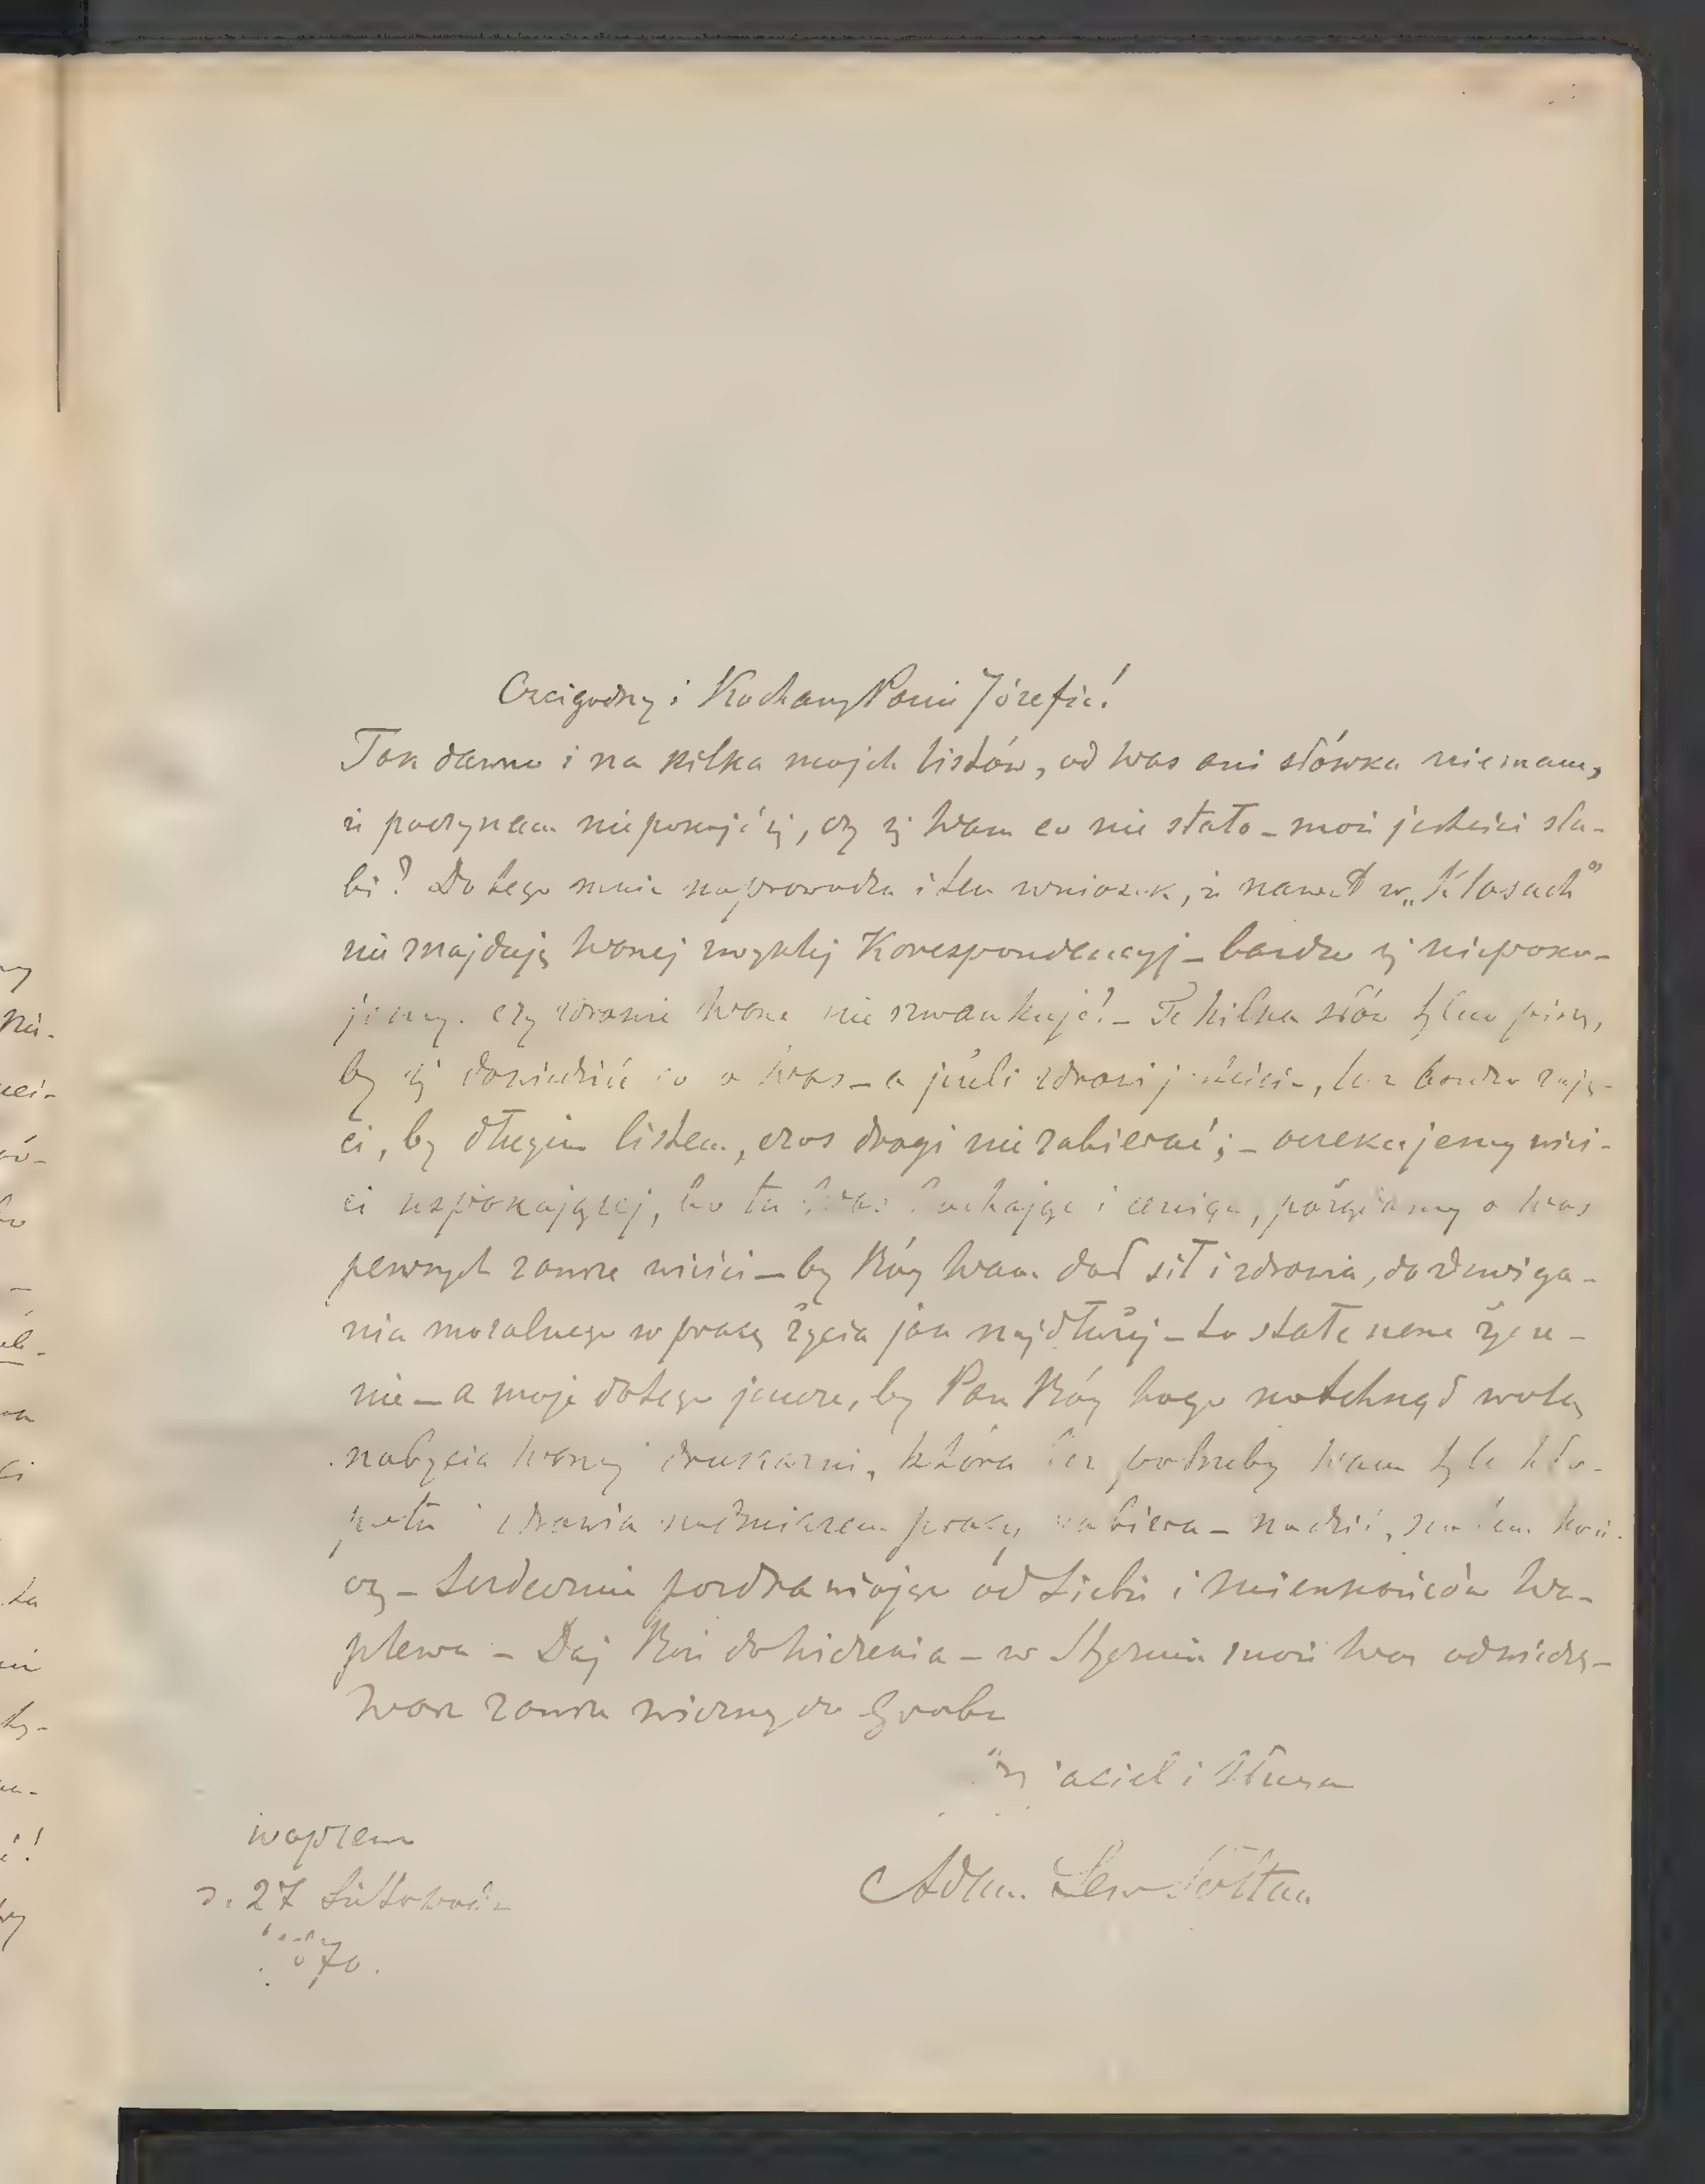 Czcigodny i Kochany Panie Józefie!
Tak dawno i na kilka mojich listów, od Was ani słówka niemam,
iż poczynam niepokojić się, czy się Wam co nie stało – może jesteście sła-
bi? Do tego mnie naprowadza i ten wniosek, iż nawet w „Kłosach”
nie znajduję Waszej zwykłej Korespondencyj – bardzo się niepoko-
jemy. czy zdrowie Wasze nie szwankuje? – Te kilka słów tylko piszę,
by się dowiedzieć co o Was – a jeżeli zdrowi jesteście, lecz bardzo zaję-
ci, by długim listem, czas drogi nie zabierać; – oczekujemy wieś-
ci uspokajającej, bo tu Was kochając i ceniąc, pożądamy o Was
pewnych zawsze wieści – by Bóg Wam dał sił i zdrowia, do dźwiga-
nia moralnego w pracy życia jak najdłużej – to stałe nasze życze-
nie – a moje do tego jeszcze, by Pan Bóg kogo natchnął wolą
nabycia Waszej drukarni, która bez potrzeby Wam tyle kło-
potu i zdrowia nadmiarem pracy zabiera –
czy – Serdecznie pozdrawiając od Siebie i Mieszkańców Wa-
plewa – Daj Boże do Widzenia – w Styczniu może Was odwiedzę –
Wasz zawsze wierny do Grobu
Przyjaciel i Sługa
Adam Lew Sołtan
Waplewo
d. 27 Listopada
1870.